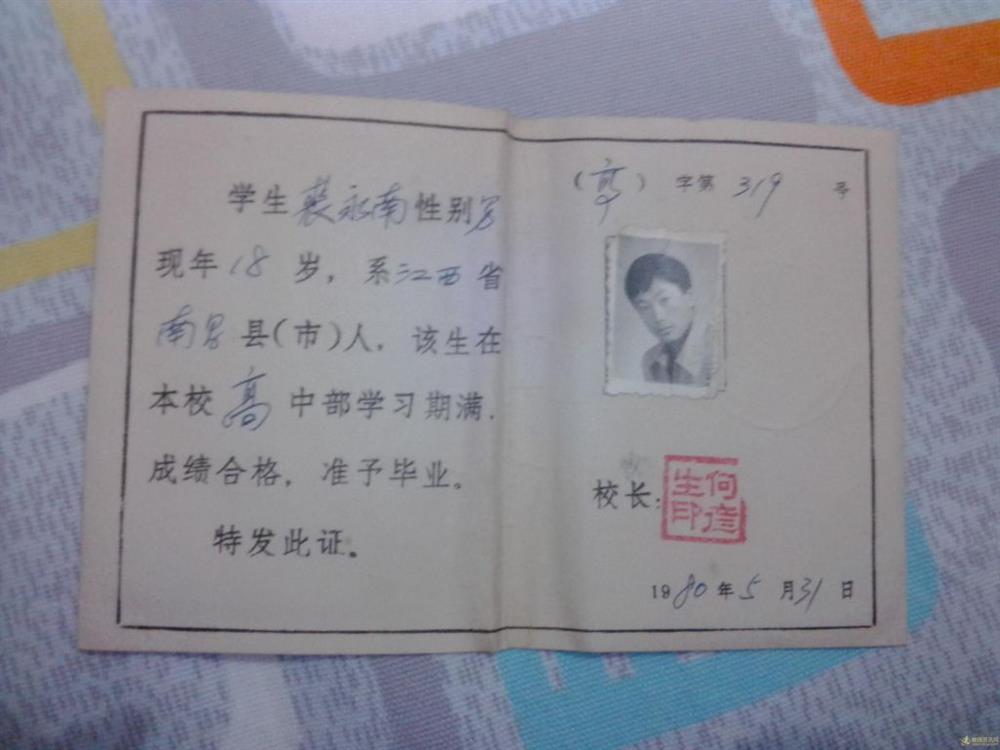 学生裴永南性别男
现年18岁，系江西省
南昌县(市)人，该生在
本校高中部学习期满，
成绩合格，准予毕业。
特发此证。
(高)字第319号
校长：
何彦生印
1980年5月31日